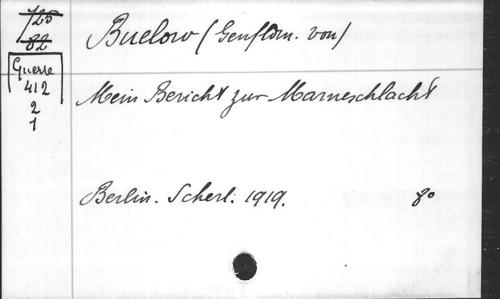 725
82
Guerre
412
2
1
Buelow (Genfldm. von)
Mein Bericht zur Marneschlacht
Berlin. Scherl. 1919. 8o